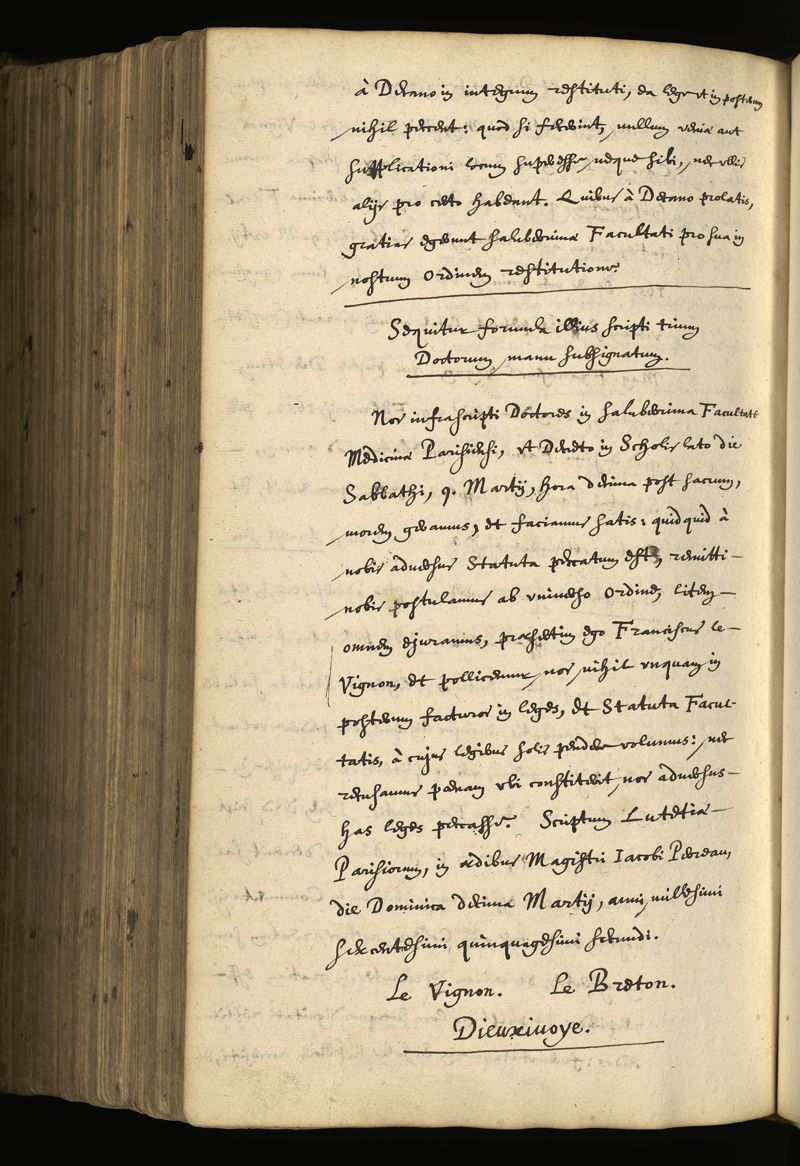 à Decano in integrum restituti, ea lege ut in posterum
nihil peccent: quod si fecerint, nullum veniæ aut
supplicationi locum superesse, neque sibi, nec ullis
alijs pro certo habeant. Quibus à Decano prolatis,
gratias egerunt saluberrimæ Facultati pro sua in
nostrum ordinem restitutione.
Sequitur formula illius scripti trium
Doctorum manu subsignatum.
Nos infrascripti Doctores in saluberrima Facultate
Medicinæ Parisiensi, ut Decreto in Scholis lato die
Sabbathi, 9. Martij, hora decima post sacrum,
morem geramus, et faciamus satis: quidquid à
nobis adversus Statuta peccatum est, remitti
nobis postulamus ab universo ordine, litem
omnem ejuramus, præsertim ego Franciscus le
Vignon, et pollicemur nos nihil unquam in
posterum facturos in leges, et Statuta Facul-
tatis, à cujus legibus solis pendere volumus: nec
recusamus pœnam ubi constiterit nos adversus
has leges peccasse. Scriptum Lutetiæ
Parisiorum, in ædibus Magistri Iacobi Perreau,
die Dominica decima Martij, anni millesimi
sexcentesimi quinquagesimi secundi.
Le Vignon. Le Breton.
Dieuxivoye.